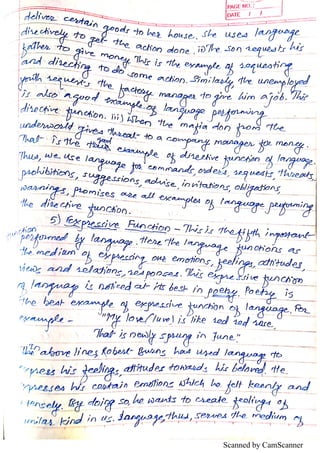 PAGE NO.:
DATE: / /
deliver certain goods to her house. She uses language
directively to get the action done. ii) The son requests his
father to give money. This is the example of requesting
and directing to do some action. Similarly, the unemployed
youth requests the factory manager to give him a job. This
is also a good example of language performing
directive function. iii) When the mafia don from the
underworld gives threat to a company manager for money.
That is the good example of directive function of language.
Thus, we use language for commands, orders, requests, threats
prohibitions, suggestions, advise, invitations, obligations,
warnings, promises are all examples of language performing
the directive function.
5) Expressive Function - This is the fifth important
function performed by language. Here the language functions as
the medium of expressing our emotions, feelings, attitudes,
views and relations, responses. This expressive function
of language is noticed at its best in poetry. Poetry is
the best example of expressive function of language. For
example - "My love/(luve) is like red red rose
That is newly sprung in June"
In above lines, Robert Burns has used language to
express his feelings, attitudes towards his beloved. He
expresses his certain emotions which he felt keenly and
intensely. By doing so, he wants to create feelings of
similar kind in us. Language, thus, serves the medium of
Scanned by CamScanner